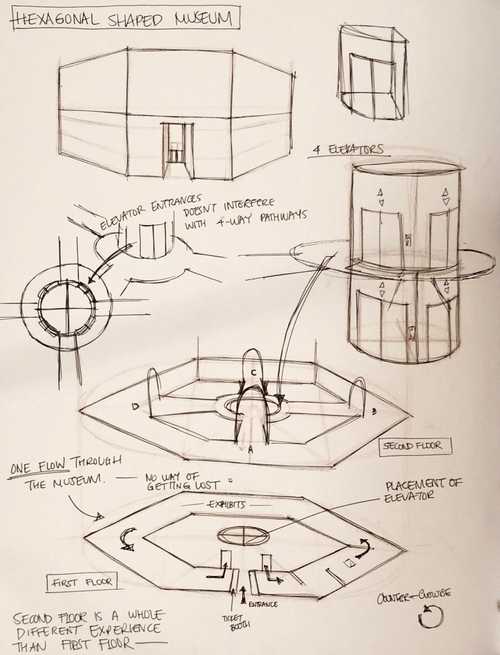 HEXAGONAL SHAPED MUSEUM
4 ELEVATORS
ELEVATOR ENTRANCES
DOESN'T INTERFERE
WITH 4-WAY PATHWAYS
C
D
B
A
SECOND FLOOR
ONE FLOW THROUGH
THE MUSEUM. — NO WAY OF
GETTING LOST
PLACEMENT OF
ELEVATOR
EXHIBITS
FIRST FLOOR
ENTRANCE
TICKET
BOOTH
COUNTER-CLOCKWISE
SECOND FLOOR IS A WHOLE
DIFFERENT EXPERIENCE
THAN FIRST FLOOR —